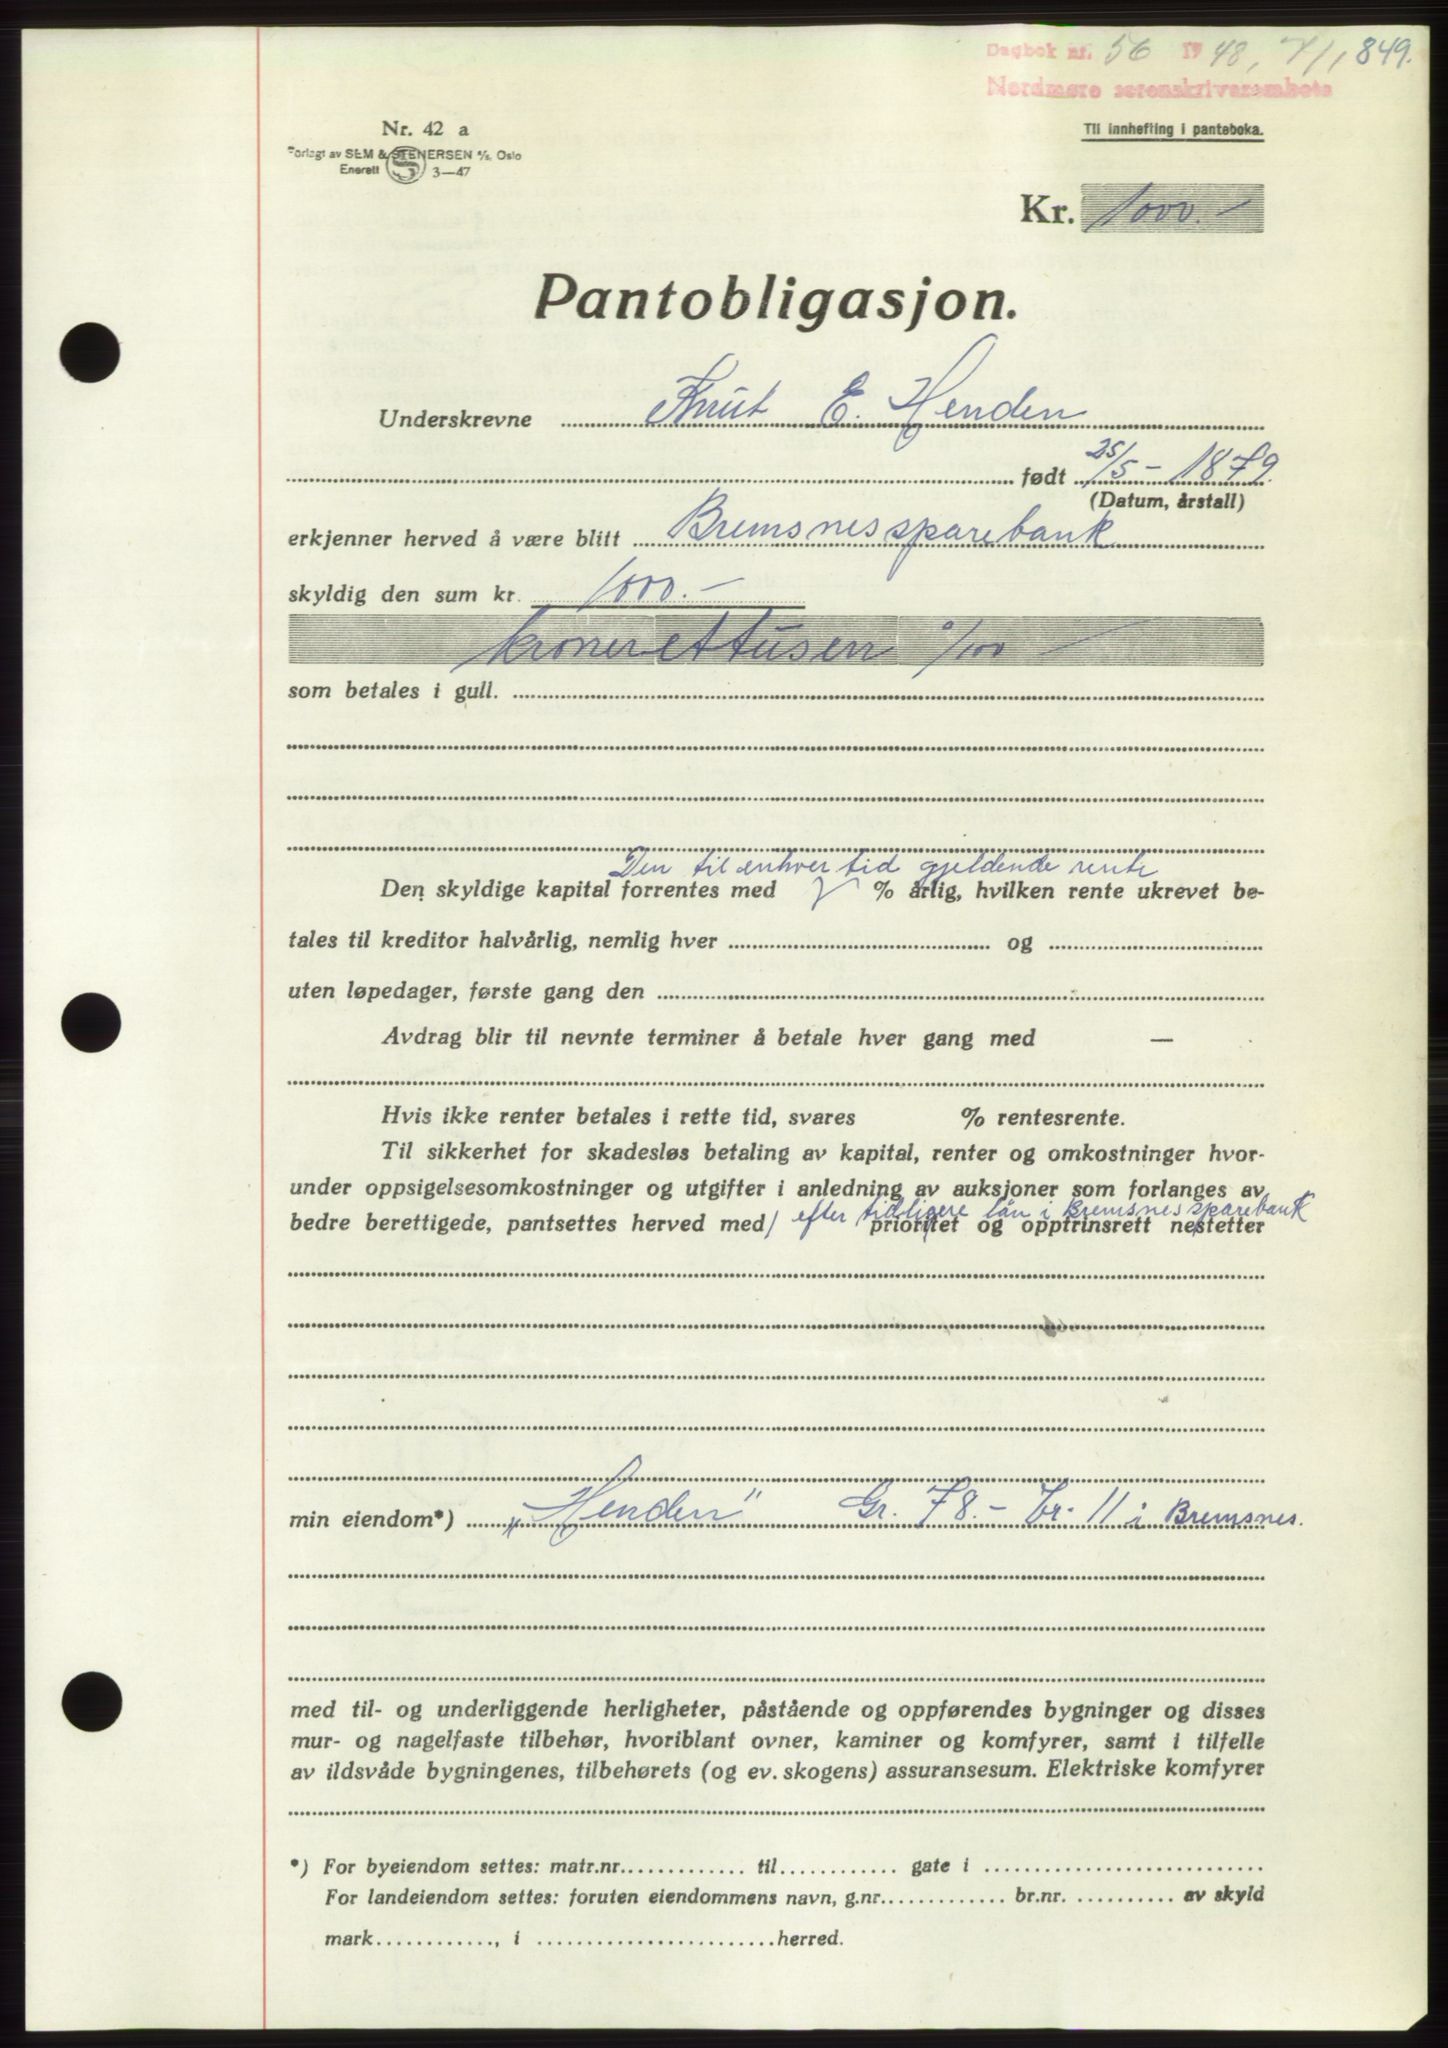 Dagbok nr. 56 1948, 7/1, 849.
Nordmøre sorenskriverembete
Nr. 42 a
Forlagt av SEM & STENERSEN A/S, Oslo
Enerett S 3—47
Til innhefting i panteboka.
Kr. 1000.-
Pantobligasjon.
Underskrevne Knut E. Henden
født 25/5 - 1879.
(Datum, årstall)
erkjenner herved å være blitt Bremsnes sparebank
skyldig den sum kr. 1000.-
kroner ettusen 0/100 —
som betales i gull.
Den til enhver tid gjeldende rente
Den skyldige kapital forrentes med √ % årlig, hvilken rente ukrevet be-
tales til kreditor halvårlig, nemlig hver og
uten løpedager, første gang den
Avdrag blir til nevnte terminer å betale hver gang med —
Hvis ikke renter betales i rette tid, svares % rentesrente.
Til sikkerhet for skadesløs betaling av kapital, renter og omkostninger hvor-
under oppsigelsesomkostninger og utgifter i anledning av auksjoner som forlanges av
efter tidligere lån i Bremsnes sparebank
bedre berettigede, pantsettes herved med prioritet og opptrinsrett nestetter
min eiendom*) „Henden" Gr. 78.- br. 11 i Bremsnes.
med til- og underliggende herligheter, påstående og oppførendes bygninger og disses
mur- og nagelfaste tilbehør, hvoriblant ovner, kaminer og komfyrer, samt i tilfelle
av ildsvåde bygningenes, tilbehørets (og ev. skogens) assuransesum. Elektriske komfyrer
*) For byeiendom settes: matr.nr. til gate i
For landeiendom settes: foruten eiendommens navn, g.nr. br.nr. av skyld
mark , i herred.